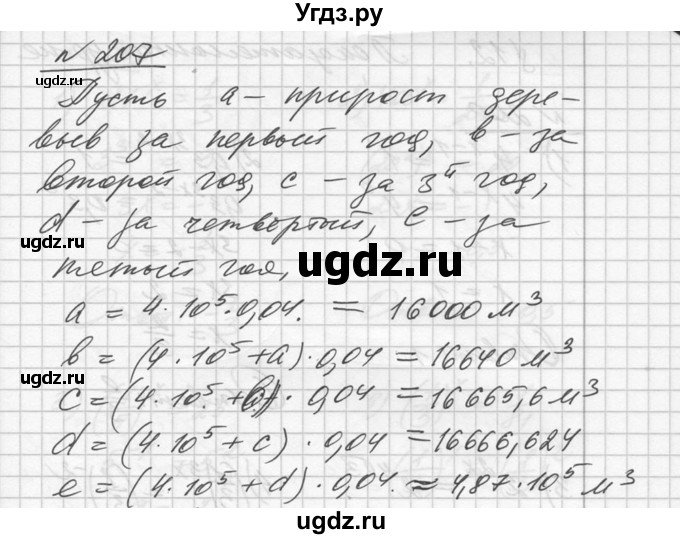 Угдз.ру
№ 207
Пусть а – прирост дере-
вьев за первый год, в – за
второй год, с – за 3й год,
d – за четвёртый, е – за
пятый год,
ugdz.ru
ugdz.ru
ugdz.ru
a = 4 · 10⁵ · 0,04. = 16000 м³
в = (4 · 10⁵ + a) · 0,04 = 16640 м³
ugdz.ru
c = (4 · 10⁵ + в) · 0,04 = 16665,6 м³
d = (4 · 10⁵ + c) · 0,04 = 16666,624
e = (4 · 10⁵ + d) · 0,04. ≈ 4,87 · 10⁵ м³
ugdz.ru
ugdz.ru